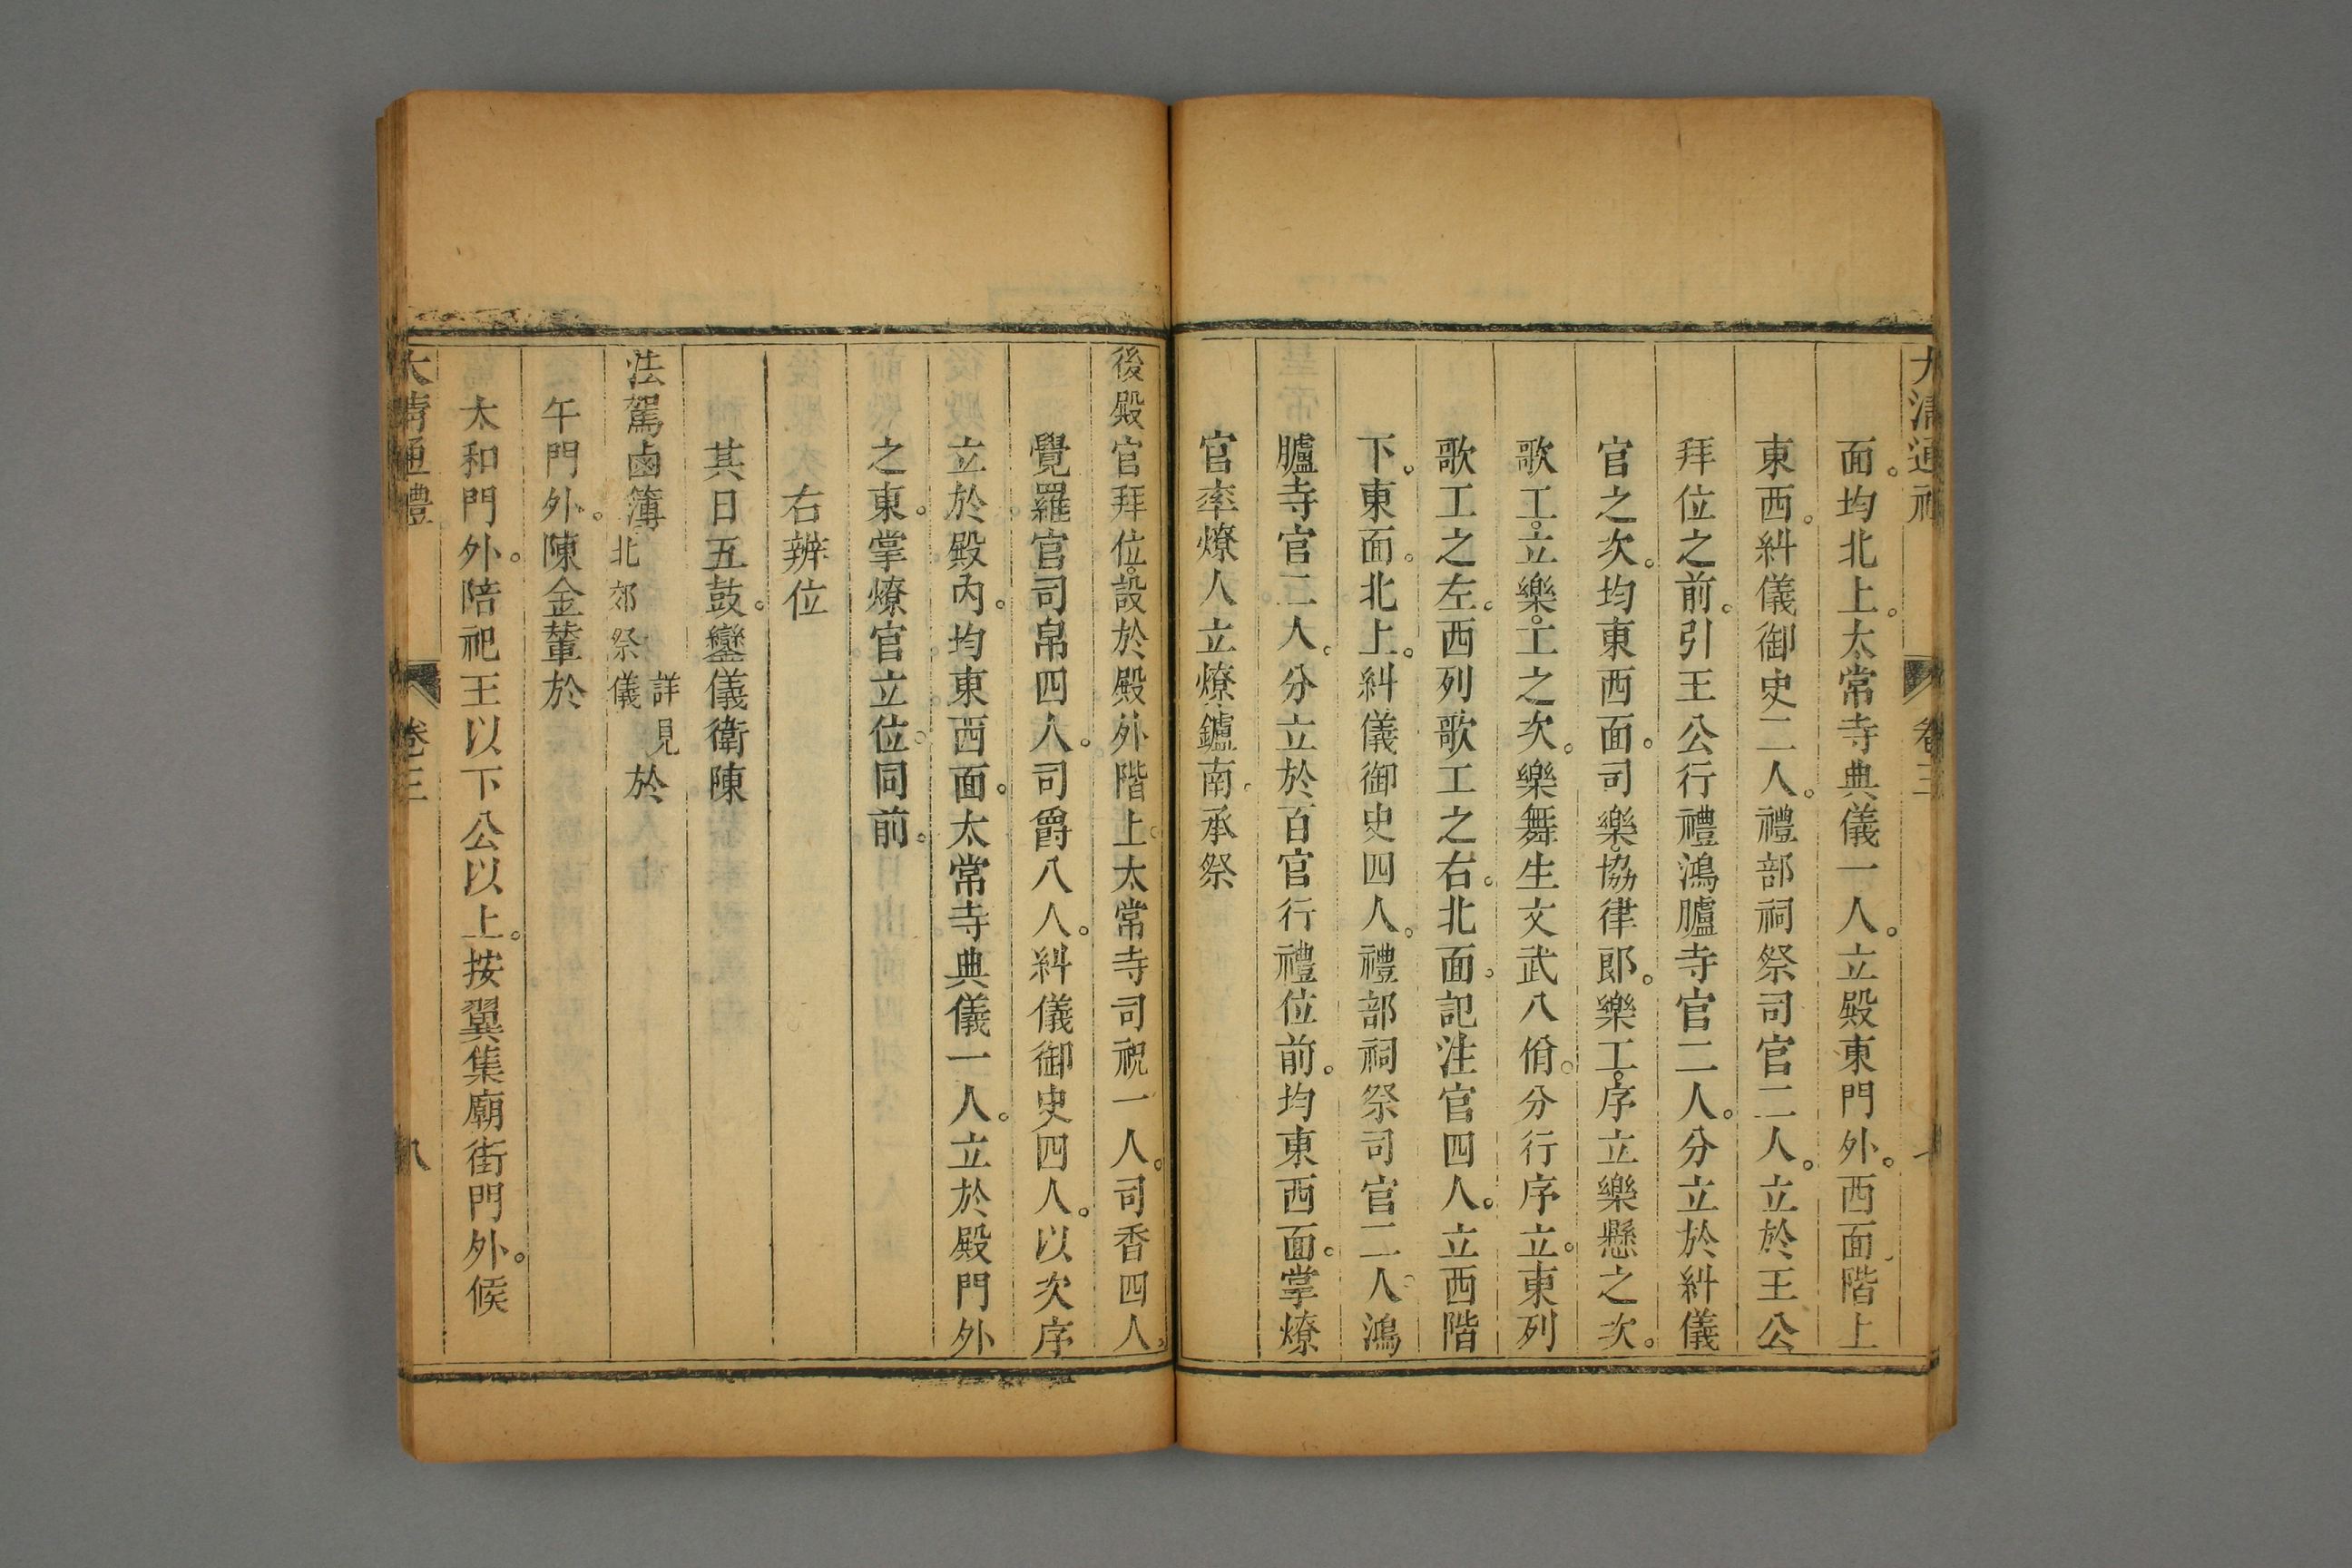 大清通禮 卷三
面。均北上。太常寺典儀一人。立殿東門外。西面。階上
東西。糾儀御史二人。禮部祠祭司官二人。立於王公
拜位之前。引王公行禮鴻臚寺官二人。分立於糾儀
官之次。均東西面。司樂。協律郎。樂工。序立樂懸之次。
歌工。立樂。工之次。樂舞生文武八佾。分行序立。東列
歌工之左。西列歌工之右。北面。記注官四人。立西階
下。東面。北上。糾儀御史四人。禮部祠祭司官二人。鴻
臚寺官二人。分立於百官行禮位前。均東西面。掌燎
官率燎人立燎鑪南。承祭
後殿官拜位。設於殿外階上。太常寺司祝一人。司香四人。
覺羅官司帛四人。司爵八人。糾儀御史四人。以次序
立於殿內。均東西面。太常寺典儀一人。立於殿門外
之東。掌燎官立位。同前。
右辨位
其日五鼓。鑾儀衛陳
法駕鹵簿詳見北郊祭儀於
午門外。陳金輦於
太和門外。陪祀王以下公以上。按翼集廟街門外。候
大清通禮 卷三 八